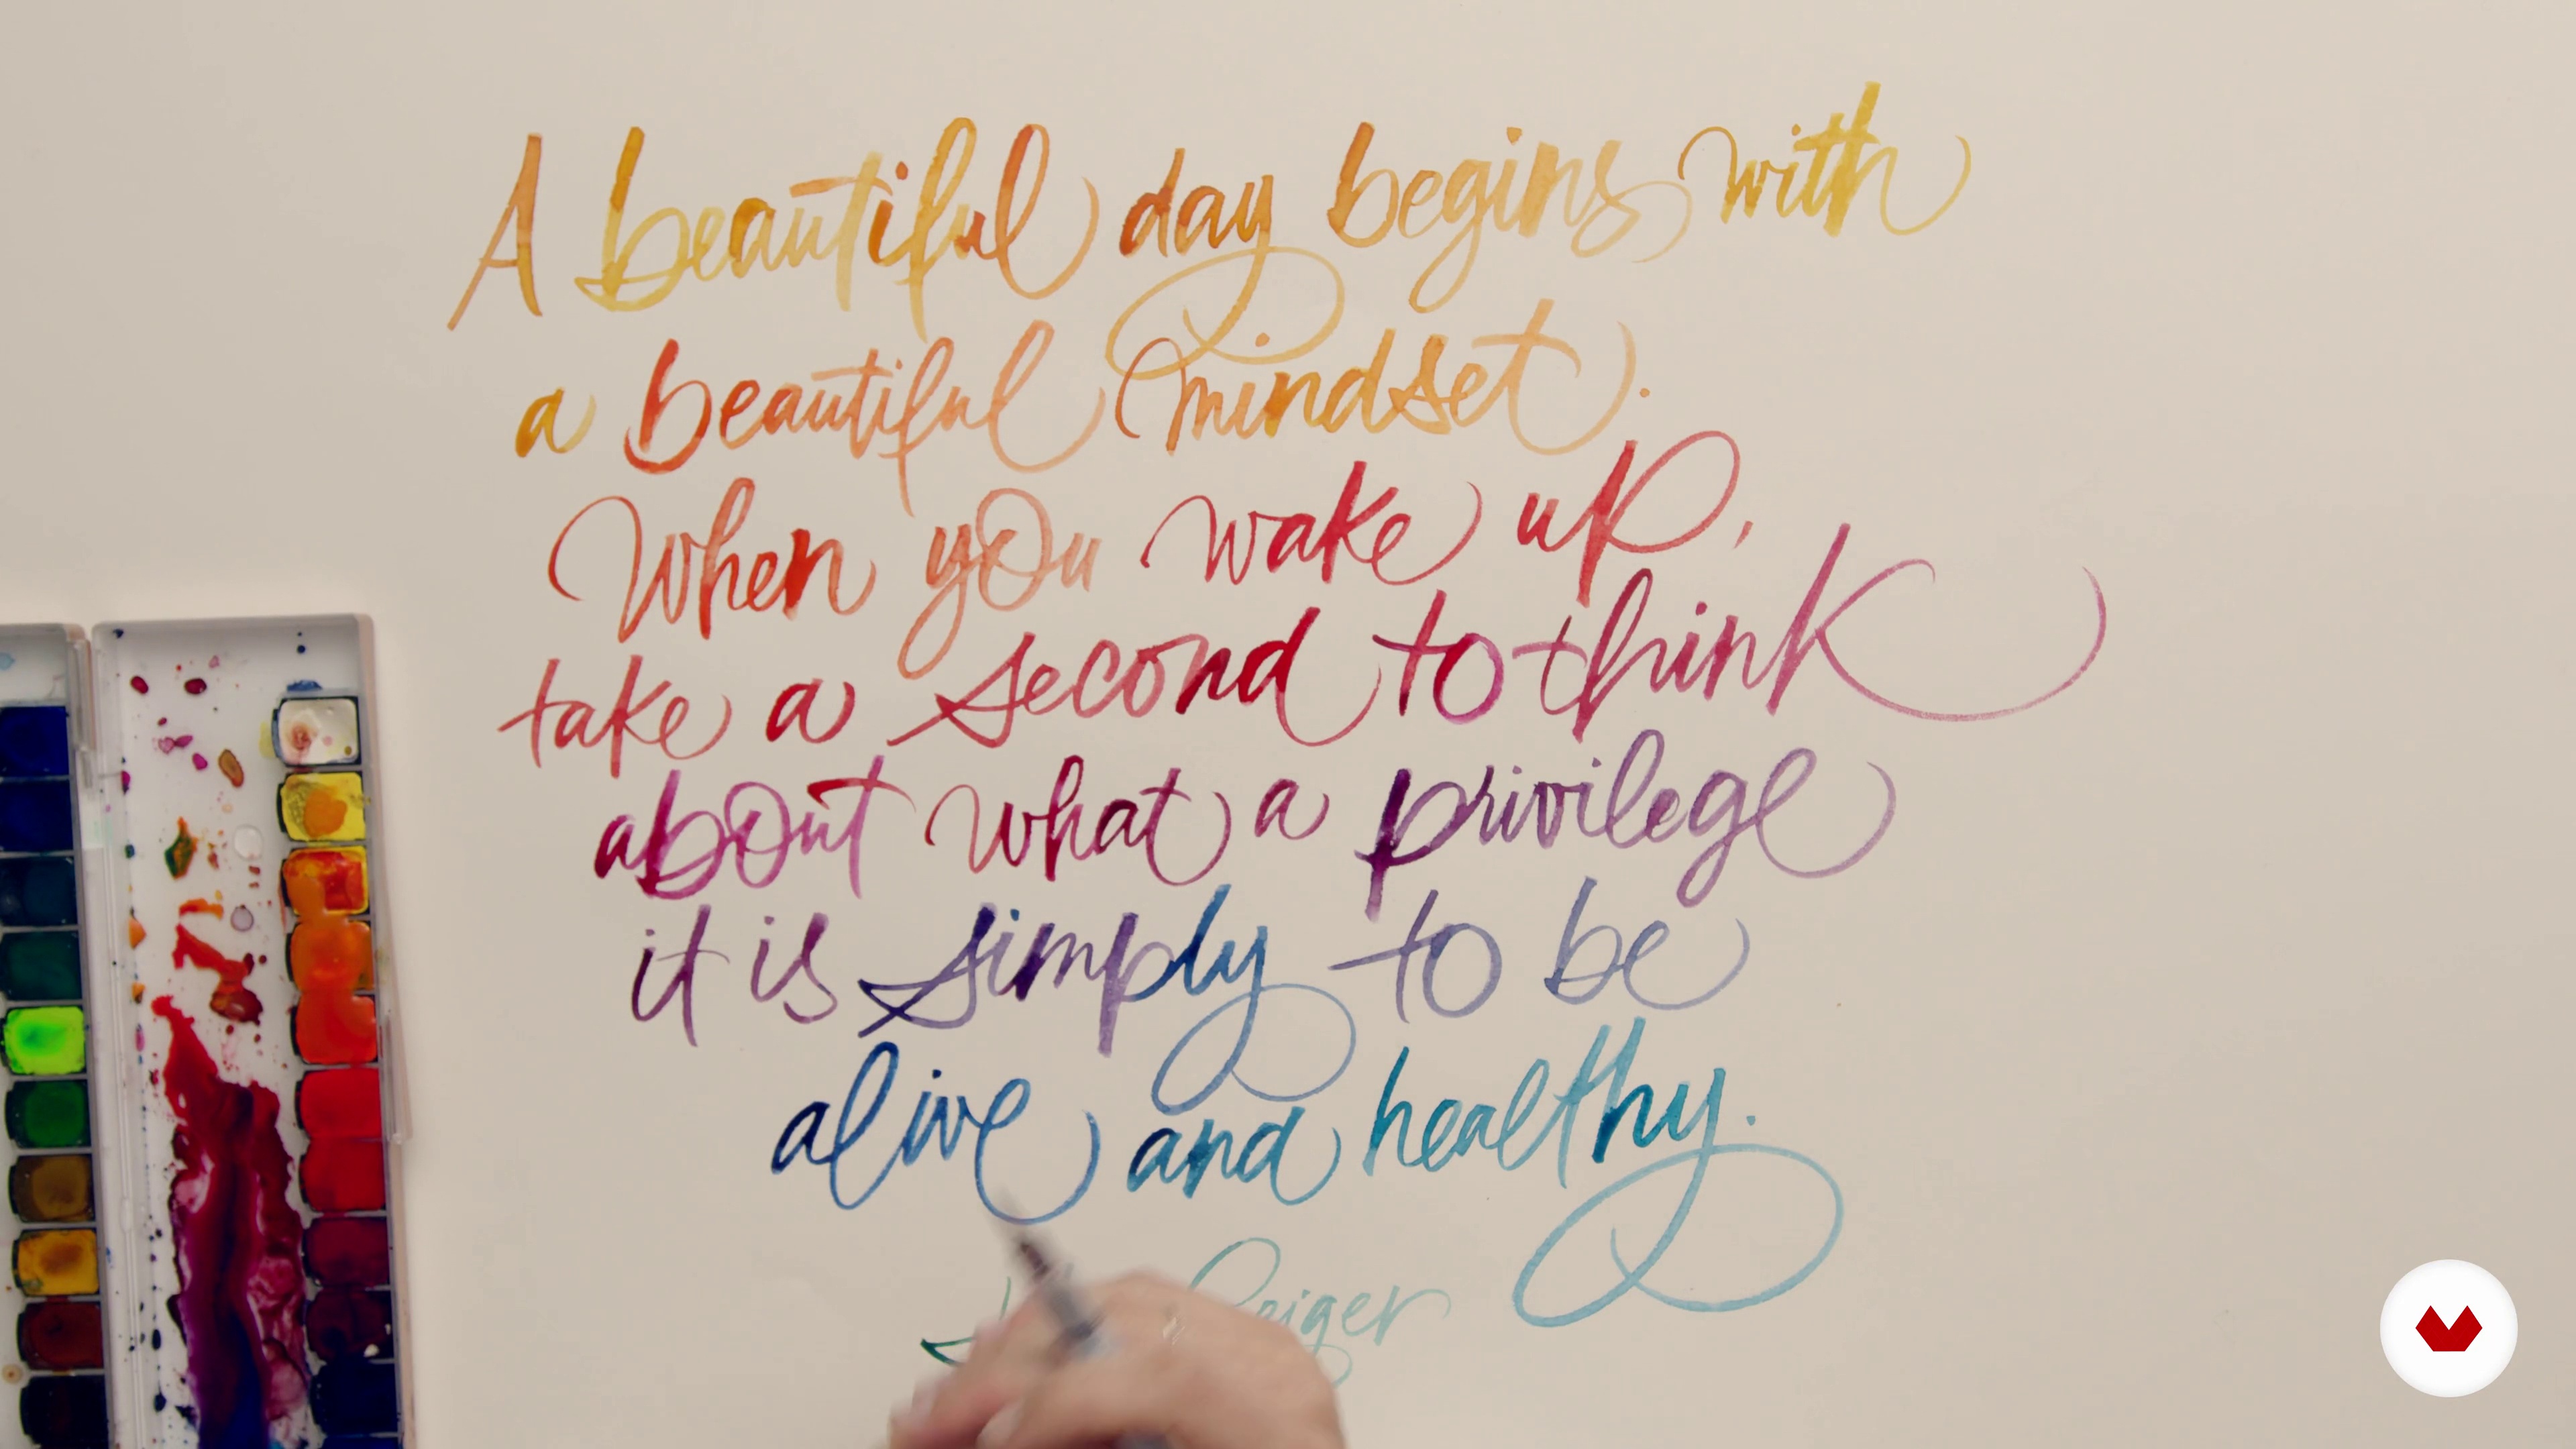 A beautiful day begins with
a beautiful mindset.
When you wake up,
take a second to think
about what a privilege
it is simply to be
alive and healthy.